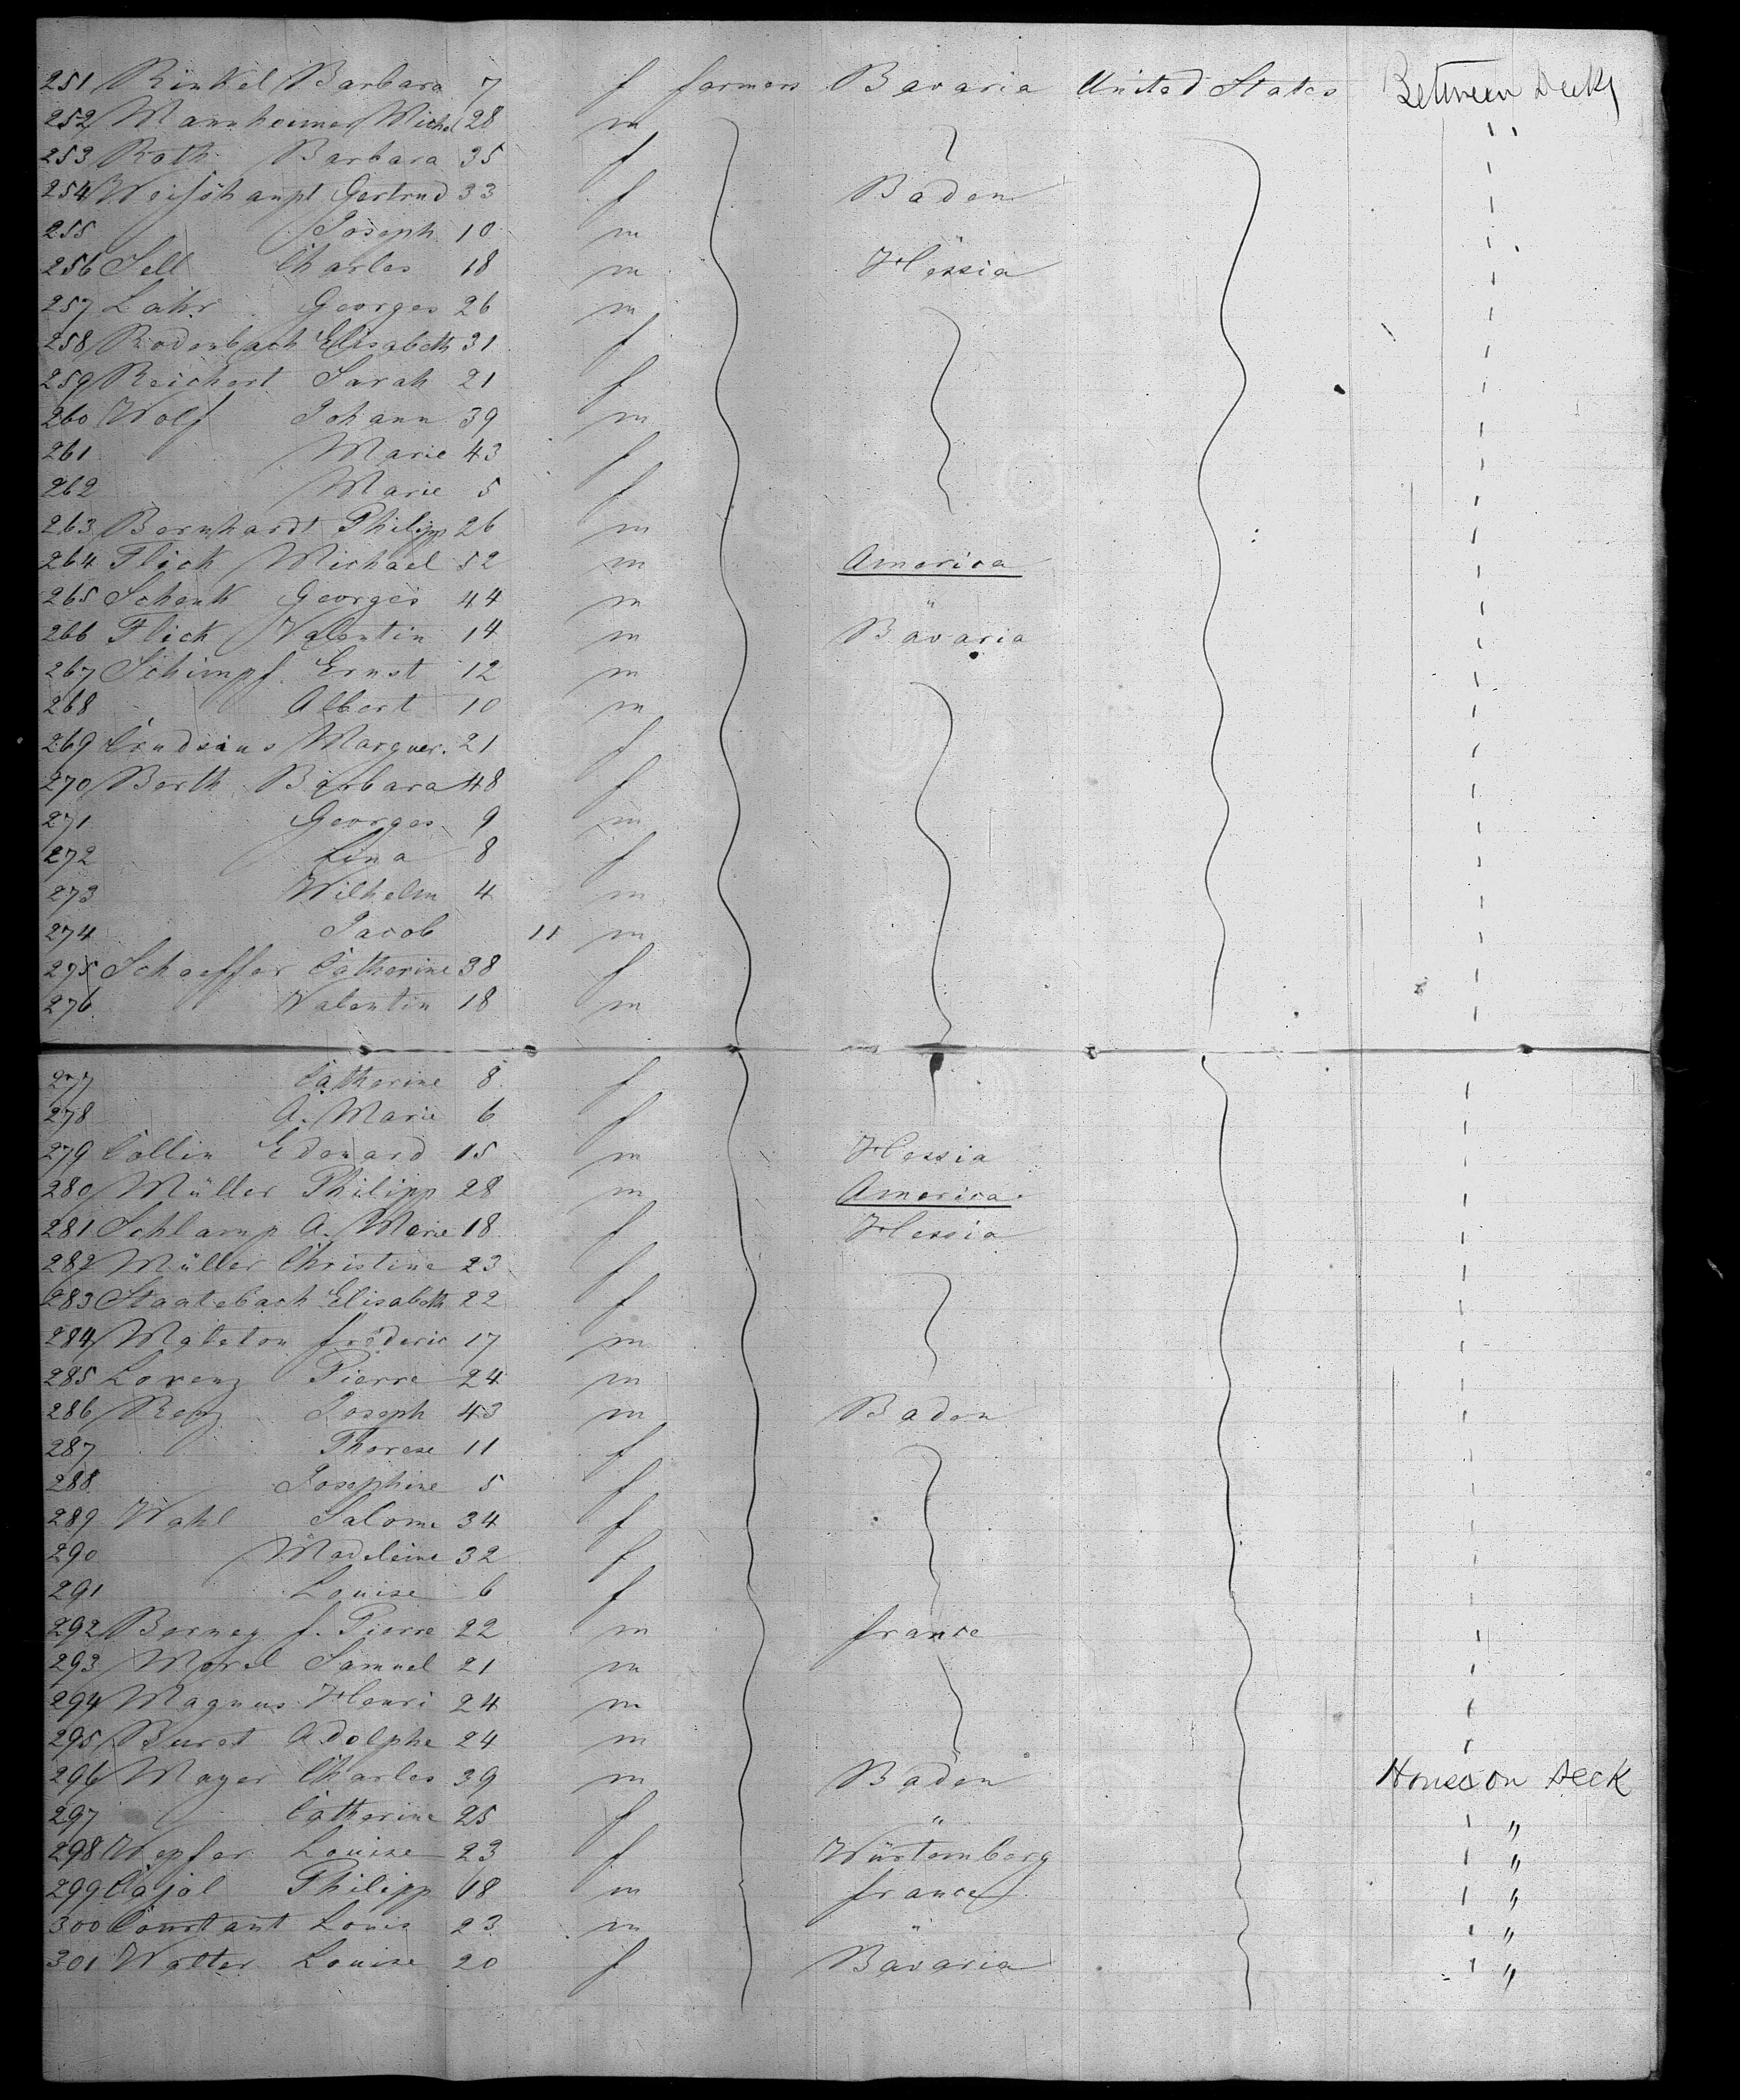 251 Rinkel Barbara 7 f farmers Bavaria United States Between Decks
252 Mannheimer Michel 28 m " "
253 Roth Barbara 35 f
254 Weisshaupt Gertrud 33 f Baden
255 Joseph 10 m
256 Sell Charles 18 m Hessia
257 Lahr Georges 26 m
258 Rodenbach Elisabeth 31 f
259 Reichert Sarah 21 f
260 Wolf Johann 39 m
261 Marie 43 f
262 Marie 5 f
263 Bernhardt Philipp 26 m
264 Flick Michael 52 m America
265 Schenk Georges 44 m "
266 Flick Valentin 14 m Bavaria
267 Schimpf Ernst 12 m
268 Albert 10 m
269 Marguer. 21 f
270 Berth Barbara 48 f
271 Georges 9 m
272 Lina 8 f
273 Wilhelm 4 m
274 Jacob 11 m
275 Schaeffer Catherine 38 f
276 Valentin 18 m
277 Catherine 8 f
278 A. Marie 6 f
279 Collin Edouard 15 m Hessia
280 Müller Philipp 28 m America
281 Schlamp A. Marie 18 f Hessia
282 Müller Christine 23 f
283 Staatsbach Elisabeth 22 f
284 fréderic 17 m
285 Lorenz Pierre 24 m
286 Renz Joseph 43 m Baden
287 Therese 11 f
288 Josephine 5 f
289 Wahl Salome 34 f
290 Madeleine 32 f
291 Louise 6 f
292 Berney f. Pierre 22 m france
293 Morel Samuel 21 m
294 Magnus Henri 24 m
295 Buret Adolphe 24 m
296 Mayer Charles 39 m Baden House on Deck
297 Catherine 25 f " "
298 Wepfer Louise 23 f Würtemberg "
299 Cajol Philipp 18 m france "
300 Constant Louis 23 m " "
301 Walter Louise 20 f Bavaria "